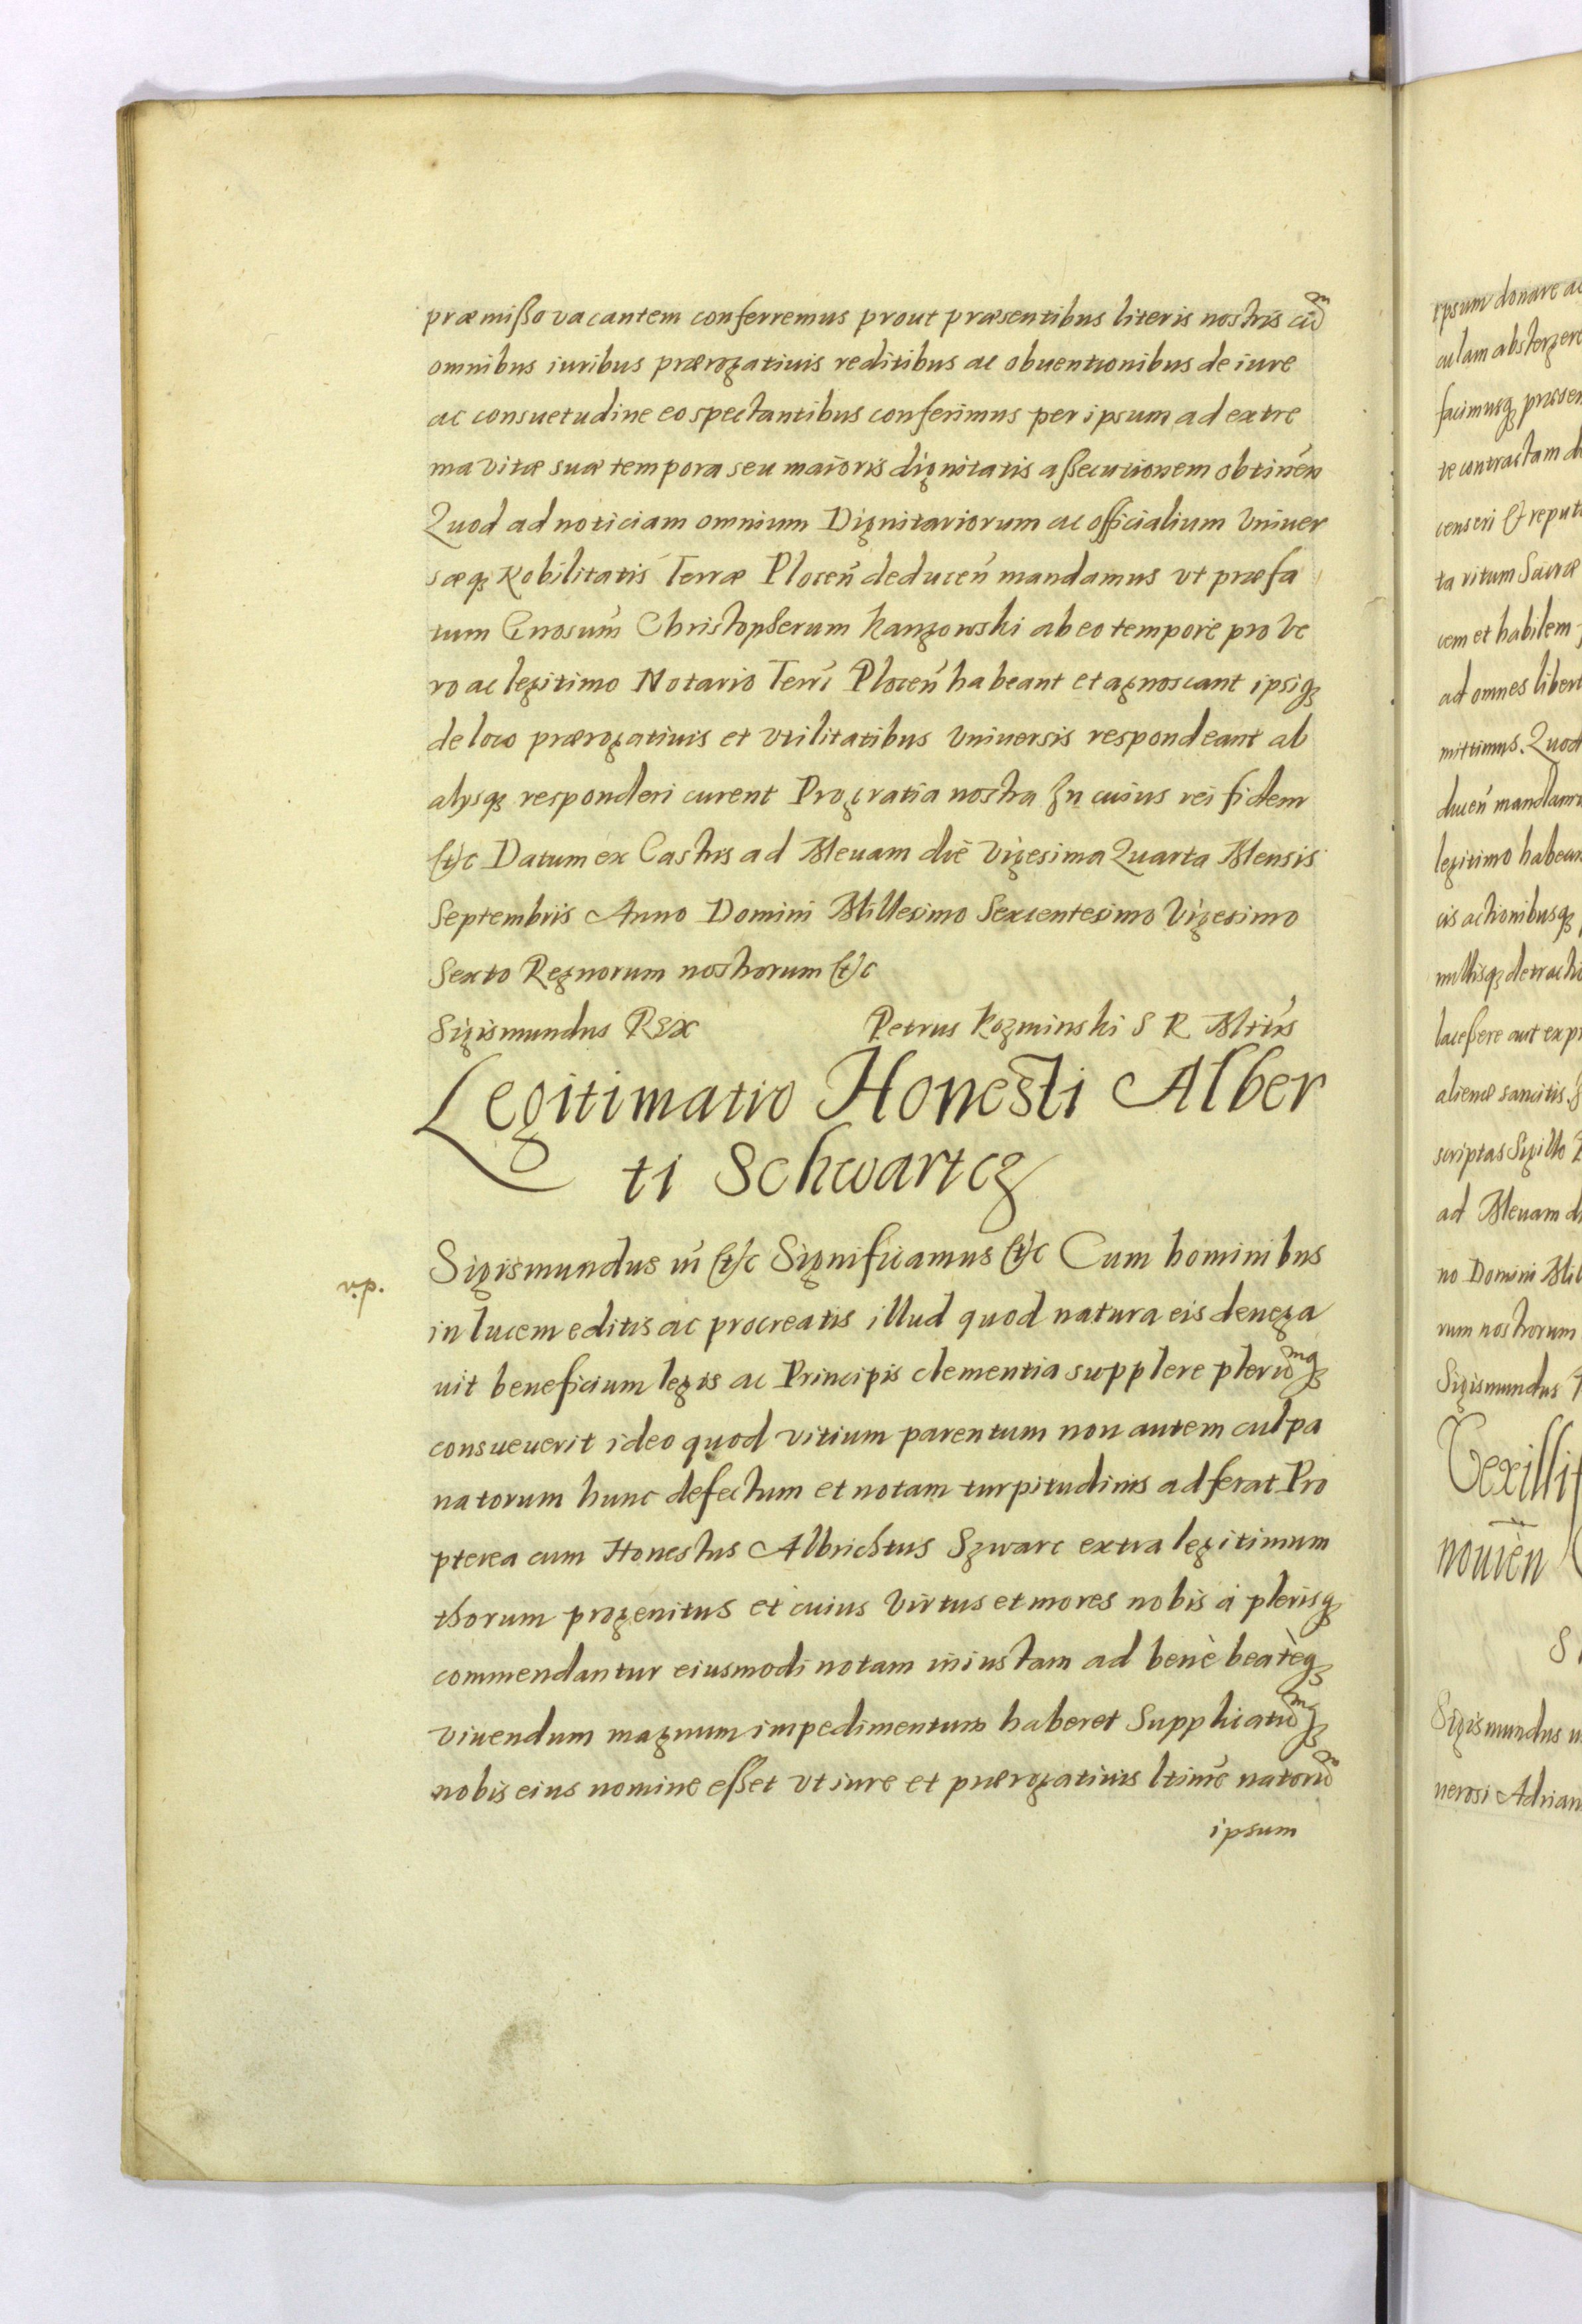 præmißo vacantem conferremus prout præsentibus literis nostris cũ
omnibus iuribus prærogatiuis reditibus ac obuentionibus de iure
ac consuetudine eo spectantibus conferimus per ipsum ad extre
ma vitæ suæ tempora seu maioris dignitatis aßecutionem obtineñ
Quod ad noticiam omnium Dignitariorum ac officialium Vniuer
sæq₃ Nobilitatis Terræ Ploceñ deduceñ mandamus vt præfa
tum Gnosum̃ Christopherum Kanzowski ab eo tempore pro Ve
ro ac legitimo Notario Terr̃ Ploceñ habeant et agnoscant ipsiq₃
de loco prærogatiuis et vtilitatibus Vniuersis respondeant ab
alysq₃ responderi curent Pro gratia nostra In cuius rei fidem
(t)c Datum ex Castris ad Meuam die Vigesima Quarta Mensis
Septembris Anno Domini Millesimo Sexcentesimo Vigesimo
Sexto Regnorum nostrorum (t)c
Sigismundus Rex Petrus Kozminski S R Mttis
Legitimatio Honesti Alber
ti Schwartcz
Sigismundus iii (t)c Significamus (t)c Cum hominibus
in lucem editis ac procreatis illud quod natura eis denega
uit beneficium legis ac Principis clementia supplere plerũq₃
consueuerit ideo quod vitium parentum non autem culpa
natorum hunc defectum et notam turpitudinis adferat Pro
pterea cum Honestus Albrichtus Szwarc extra legitimum
thorum progenitus et cuius Virtus et mores nobis à plerisq₃
commendantur eiusmodi notam iniustam ad benè beatèq₃
viuendum magnum impedimentum haberet Supplicatũq₃
nobis eius nomine eßet vt iure et prærogatiuis ltime natorũ
ipsum
ipsum donare ac
culam absterger
facimusq₃ præsen
te contractam
censeri & reput
ta ritum Sacræ
cem et habilem
ad omnes libert
mittimus. Quod
duceñ mandam
legitimo habean
cis actionibusq₃
nullisq₃ detracti
laceßere aut exp
alienæ sancitis.
scriptas Sigillo
ad Meuam d
no Domini Mil
rum nostrorum
Sigismundus
Vexilli
nouieñ
Sigismundus
nerosi Adrian